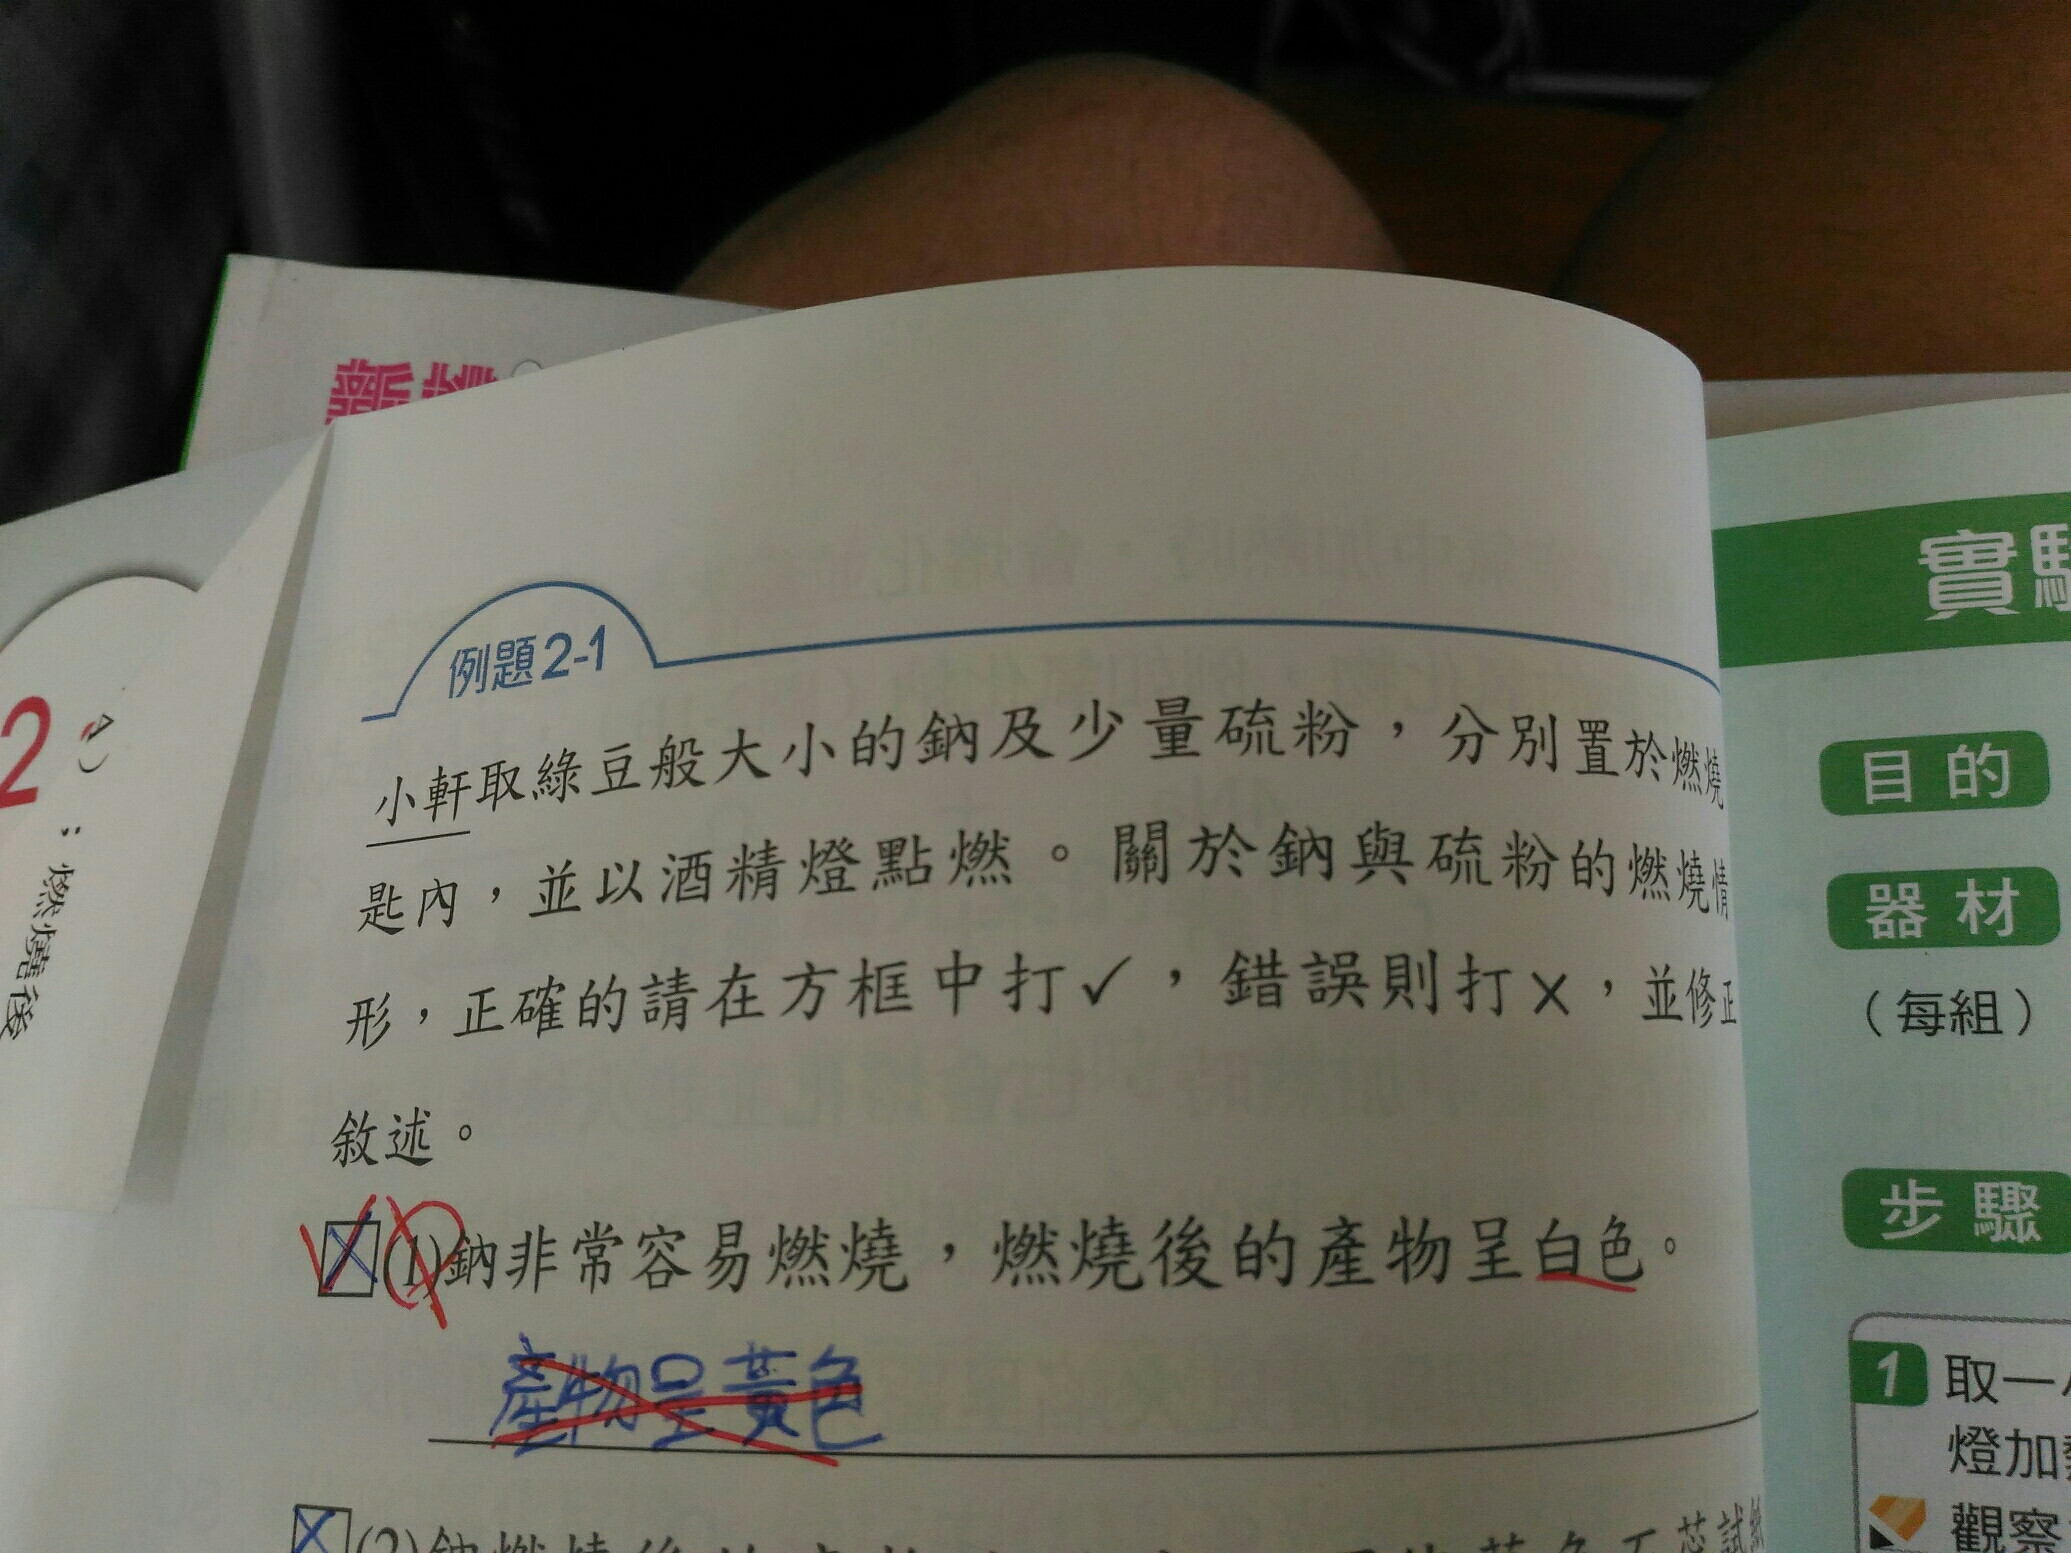 新
例題2-1
小軒取綠豆般大小的鈉及少量硫粉，分別置於燃燒
匙內，並以酒精燈點燃。關於鈉與硫粉的燃燒情
形，正確的請在方框中打✓，錯誤則打×，並修正
敘述。
(1)鈉非常容易燃燒，燃燒後的產物呈白色。
產物呈黃色
(2)鈉燃燒後的產物
試紙
2
：燃燒後
實驗
目的
器材
（每組）
步驟
1 取一小
燈加熱
觀察